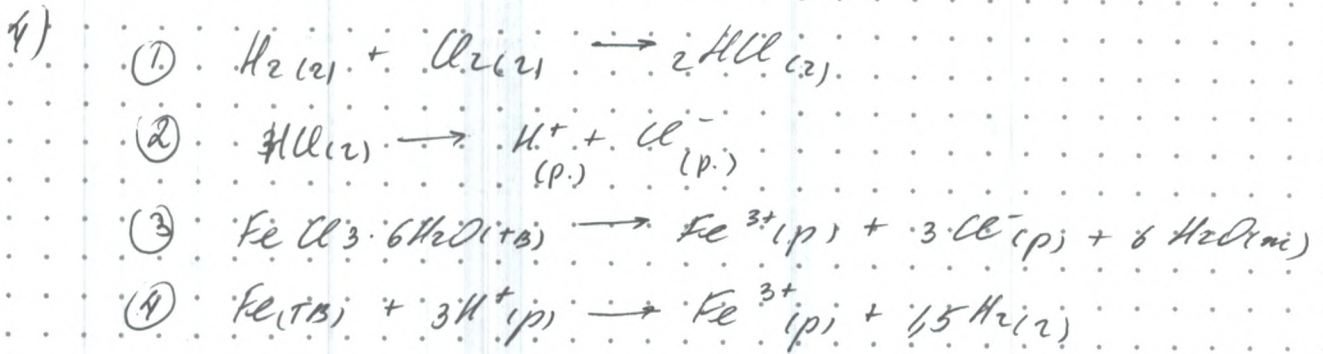 4)
① H₂(г) + Cl₂(г) → 2HCl(г).
② HCl(г) → H⁺(р.) + Cl⁻(р.)
③ FeCl₃·6H₂O(тв) → Fe³⁺(р) + 3Cl⁻(р) + 6H₂O(ж)
④ Fe(тв) + 3H⁺(р) → Fe³⁺(р) + 1,5H₂(г)